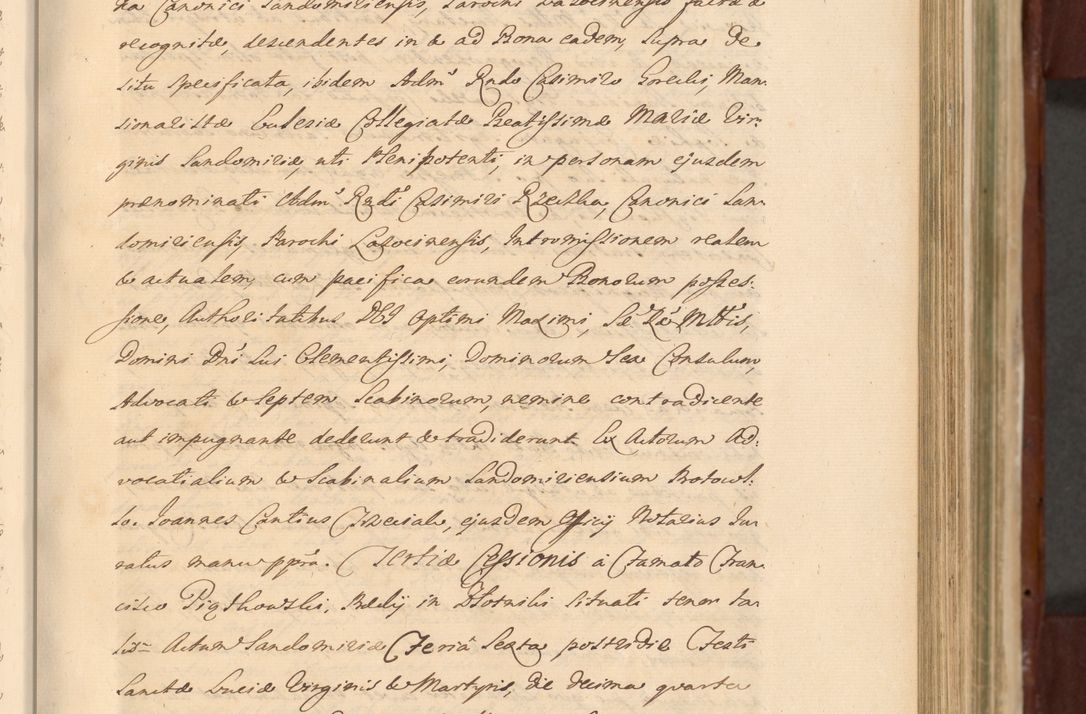 ka Canonici Sandomiriensis, Parochi Lazocinensis factæ &
recognitæ, descendentes in & ad Bona eadem, supra de
situ specificata, ibidem Adm: Rndo Casimiro Gorecki, Man-
sionaristæ Ecclesiæ Collegiatæ Beatissimæ MARIÆ Vir-
ginis Sandomiriæ, uti Plenipotenti, in personam ejusdem
prænominati Adm: Rndi Casimiri Rzeczka, Canonici San-
domiriensis, Parochi Lazocinensis, Intromissionem realem
& actualem, cum pacifica eorundem Bonorum posses-
sione, Authoritatibus DEI Optimi Maximi, Sæ Ræ Mttis,
Domini Dni Sui Clementissimi, Dominorum Sex Consulum,
Advocati & Septem Scabinorum, nemine contradicente
aut impugnante dederunt & tradiderunt. Ex Actorum Ad-
vocatialium & Scabinalium Sandomiriensium Protocol-
lo. Joannes Cantius, ejusdem Officij Notarius Ju-
ratus manu pprâ. Tertiæ Cessionis à Famato Fran-
cisco Piątkowski, Prædij in Płotniki situati tenor ta-
lis= Actum Sandomiriæ Feriâ Sexta postridie Festi
Sanctæ Luciæ Virginis & Martyris, die decima quarta